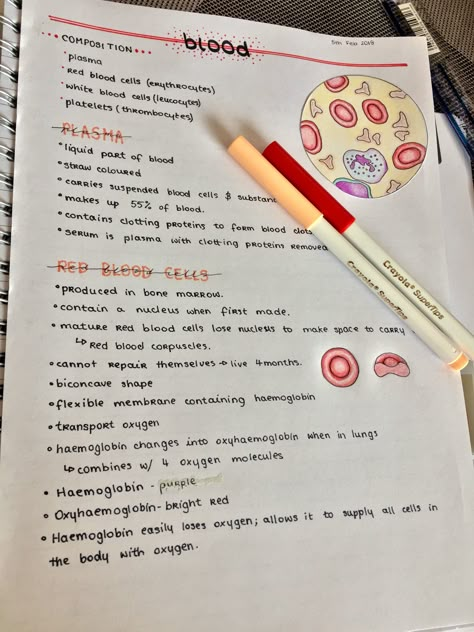 blood
5th Feb 2019
COMPOSITION
• plasma
• Red blood cells (erythrocytes)
• white blood cells (leucocytes)
• platelets (thrombocytes)
PLASMA
• liquid part of blood
• straw coloured
• carries suspended blood cells &
• makes up 55% of blood.
• contains clotting proteins to form blood clots
• serum is plasma with clotting proteins removed
RED BLOOD CELLS
• produced in bone marrow.
• contain a nucleus when first made.
• mature red blood cells lose nucleus to make space to carry
↳ Red blood corpuscles.
• cannot repair themselves → live 4 months.
• biconcave shape
• flexible membrane containing haemoglobin
• transport oxygen
• haemoglobin changes into oxyhaemoglobin when in lungs
↳ combines w/ 4 oxygen molecules
• Haemoglobin - purple
• Oxyhaemoglobin - bright red
• Haemoglobin easily loses oxygen; allows it to supply all cells in
the body with oxygen.
Crayola SuperTips
Crayola SuperTips